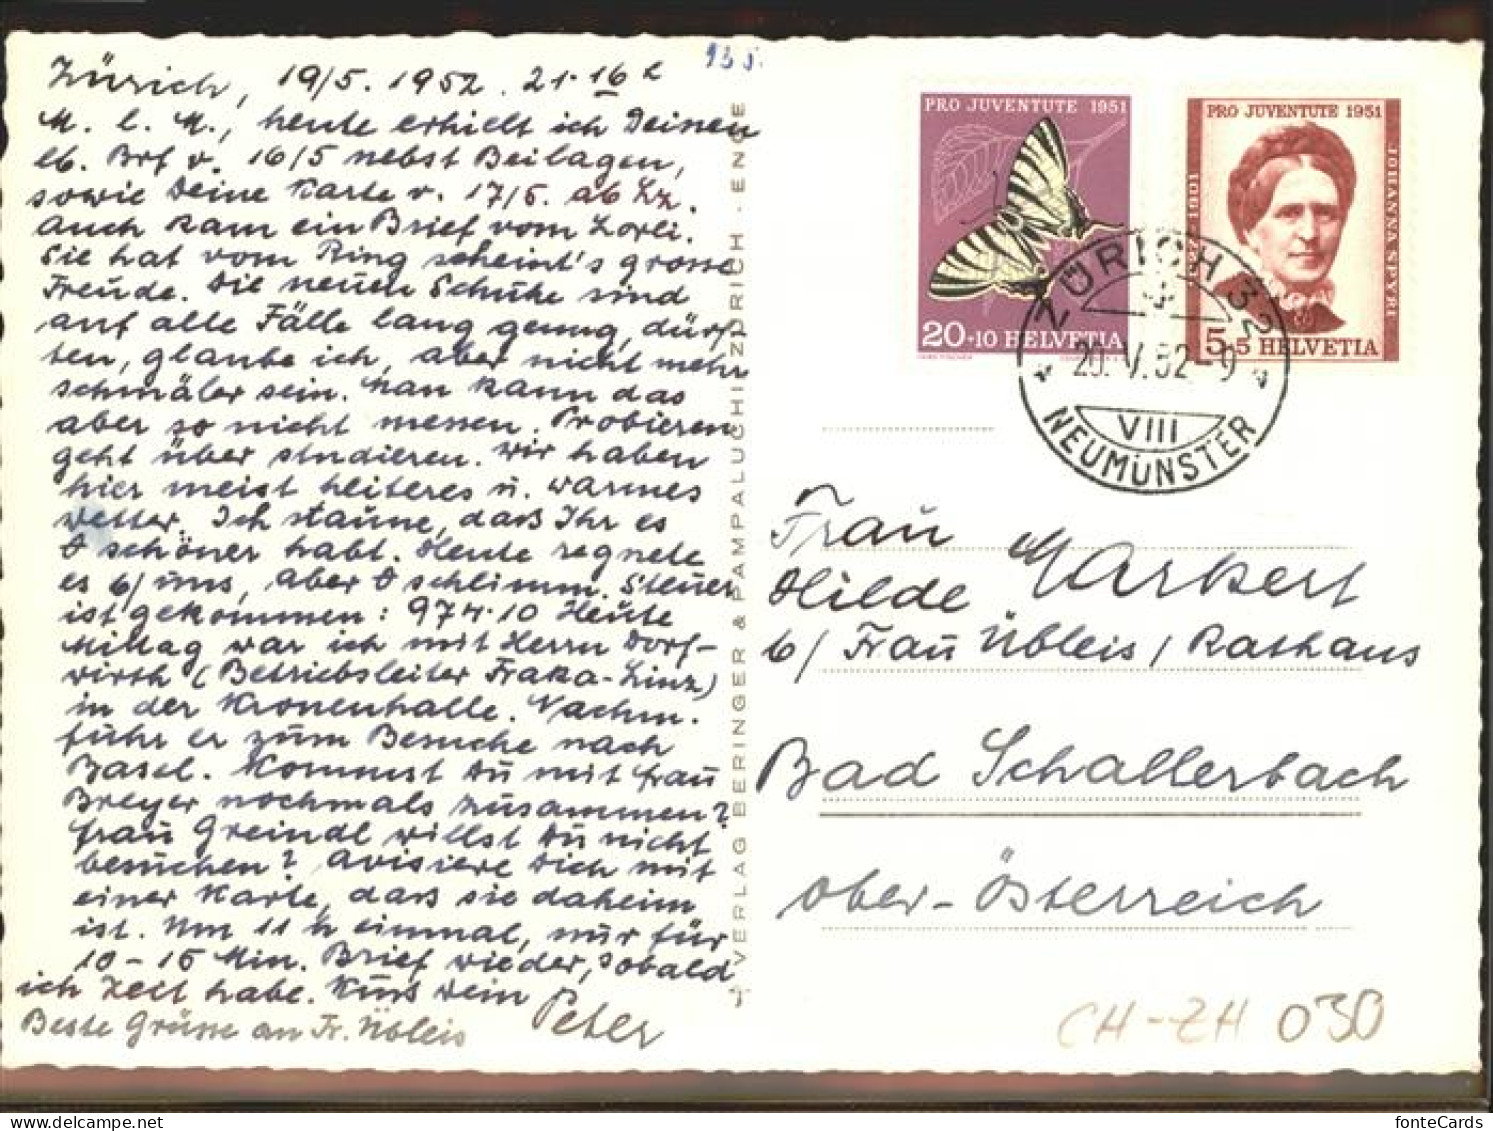 935.
Zürich, 19/5. 1952. 21.16 h
M. l. M., heute erhielt ich Deinen
lb. Brf v. 16/5 nebst Beilagen,
sowie Deine Karte v. 17/5. ab Lz.
Auch kam ein Brief vom Lorli.
Sie hat vom Ring scheint's grosse
Freude. Die neuen Schuhe sind
auf alle Fälle lang genug, dürf-
ten, glaube ich, aber nicht mehr
schmäler sein. Man kann das
aber so nicht messen. Probieren
geht über studieren. Wir haben
hier meist heiteres u. warmes
Wetter. Ich staune, daß Ihr es
schöner habt. Heute regnete
es b/ uns, aber schlimm. Steuer
ist gekommen: 974.10 Heute
Mittag war ich mit Herrn Dorf-
wirth (Betriebsleiter Fraka-Linz)
in der Kronenhalle. Nachm.
fuhr er zum Besuche nach
Basel. Kommst Du mit Frau
Breyer nochmals zusammen?
Frau Greindl willst Du nicht
besuchen? Avisiere Dich mit
einer Karte, daß sie daheim
ist. Um 11 h einmal, nur für
10-15 Min. Brief wieder, sobald
ich Zeit habe. Kuss Dein Peter
Beste Grüsse an Fr. Übleis
VERLAG BERINGER & PAMPALUCHI ZÜRICH - ENGE
PRO JUVENTUTE 1951
20+10 HELVETIA
PRO JUVENTUTE 1951
JOHANNA SPYRI
1827-1901
5+5 HELVETIA
ZÜRICH 32
20.V.52-9
VIII
NEUMÜNSTER
Frau
Hilde Markert
b/ Frau Übleis / Rathaus
Bad Schallerbach
Ober-Österreich
CH-ZH 030
fonteCards